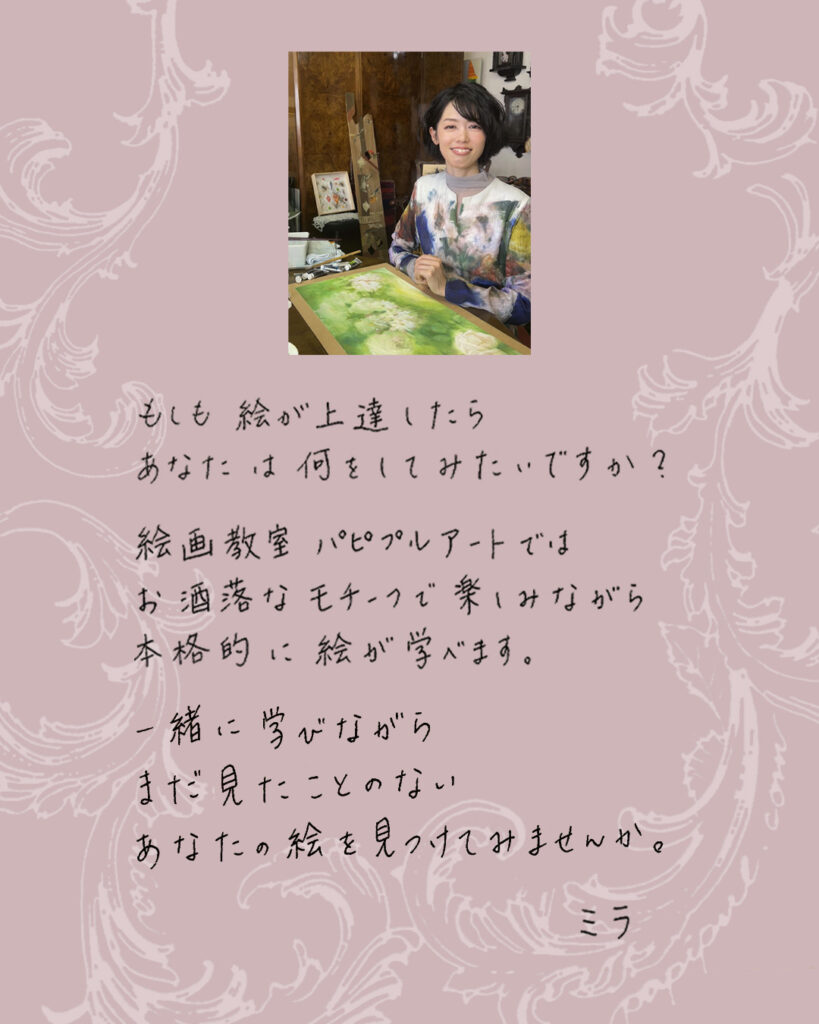 もしも 絵が上達したら
あなたは 何をしてみたいですか？
絵画教室 パピプルアートでは
お洒落なモチーフで 楽しみながら
本格的に 絵が学べます。
一緒に 学びながら
まだ見たことのない
あなたの絵を見つけてみませんか。
ミラ